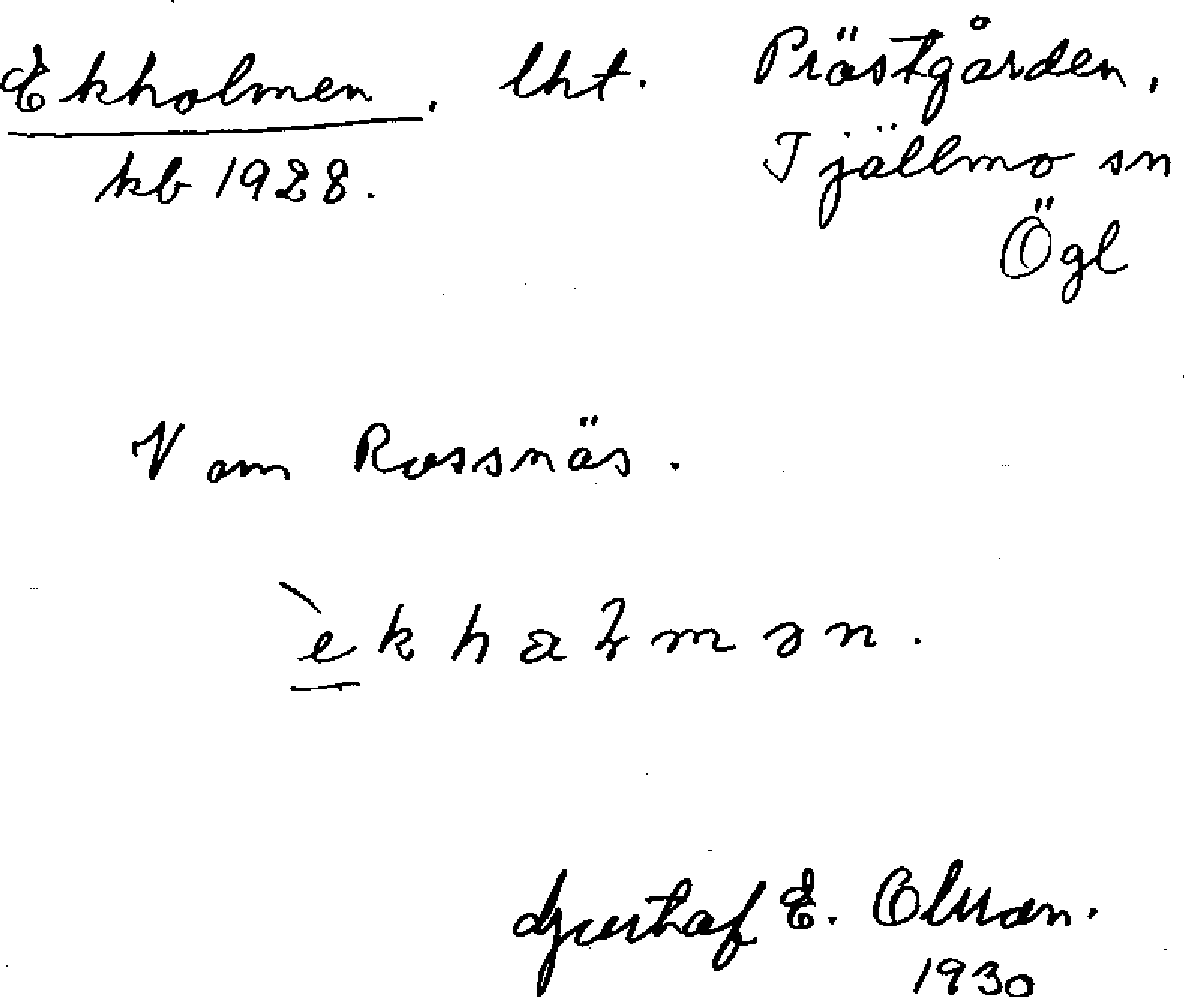 Ekholmen. lht. Prästgården,
kb 1928. Tjällmo sn
Ögl
V om Rossnäs.
èkhaɫmən.
Gusthaf E. Olsson.
1930